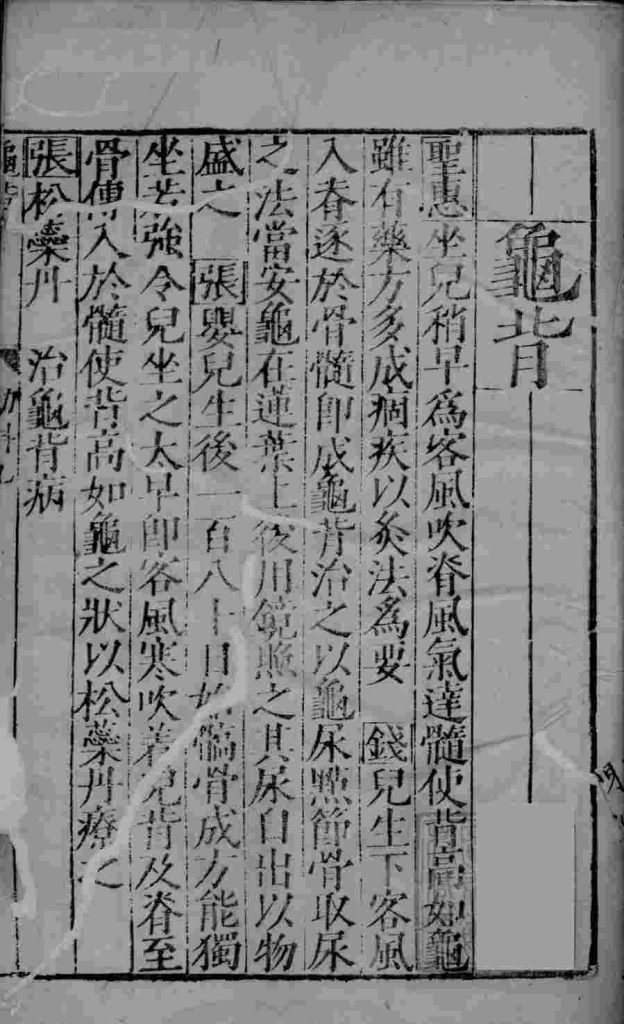 龜背
聖惠坐兒稍早為客風吹脊風氣達髓使背高如龜
雖有藥方多成痼疾以灸法為要　錢兒生下客風
入脊逐於骨髓即成龜背治之以龜尿㸃節骨取尿
之法當安龜在蓮葉上後用鏡照之其尿自出以物
盛之　張嬰兒生後一百八十日始髇骨成方能獨
坐若強令兒坐之太早即客風寒吹着兒背及脊至
骨傳入於髓使背高如龜之狀以松蘂丹療之
張松蘂丹　治龜背病
龜背